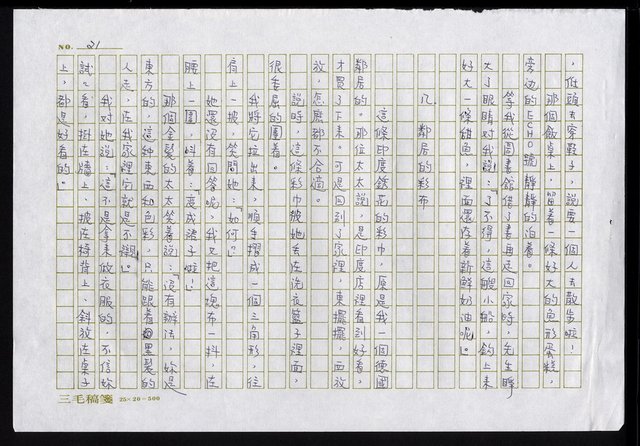 NO. 21
，低頭去穿鞋子，說要一個人去散步啦！
那個飯桌上，留着一條好大的魚形蛋糕，
旁邊的ECHO號靜靜的泊着。
等我從圖書館借了書再走回家時，先生睜
大了眼睛對我說：「了不得，這艘小船，釣上來
好大一條甜魚，裡面還存着新鮮奶油呢！」
鄰居的彩布
這條印度綉花的彩巾，原是我一個德國
鄰居的。那位太太說，是印度店裡看到好看，
才買了下來。可是回到了家裡，東擺擺，西放
放，怎麼都不合適。
說時，這條彩巾被她丟在洗衣籃子裡面，
很委屈的團着。
我將它拉出來，順手摺成一個三角形，往
肩上一披，笑問她：「如何？」
她還沒有回答呢，我又把這塊布一抖，在
腰上一圍，斜着：「變成裙子啦！」
那個金髮的太太笑着說：「沒有辦法，妳是
東方的，這種東西和色彩，只能跟着黑髮的
人走，在我家裡它就是不襯。」
我對她說：這不是拿來做衣服的，不信妳
試試看，掛在牆上、披在椅背上、斜放在桌子
上，都是好看的。」
三毛稿箋 25×20=500